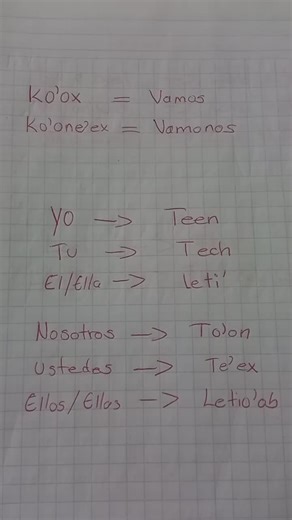 Ko'ox = Vamos
Ko'one'ex = Vamonos
Yo –> Teen
Tu –> Tech
El/Ella –> Leti'
Nosotros –> To'on
Ustedes –> Te'ex
Ellos/Ellas –> Letio'ab